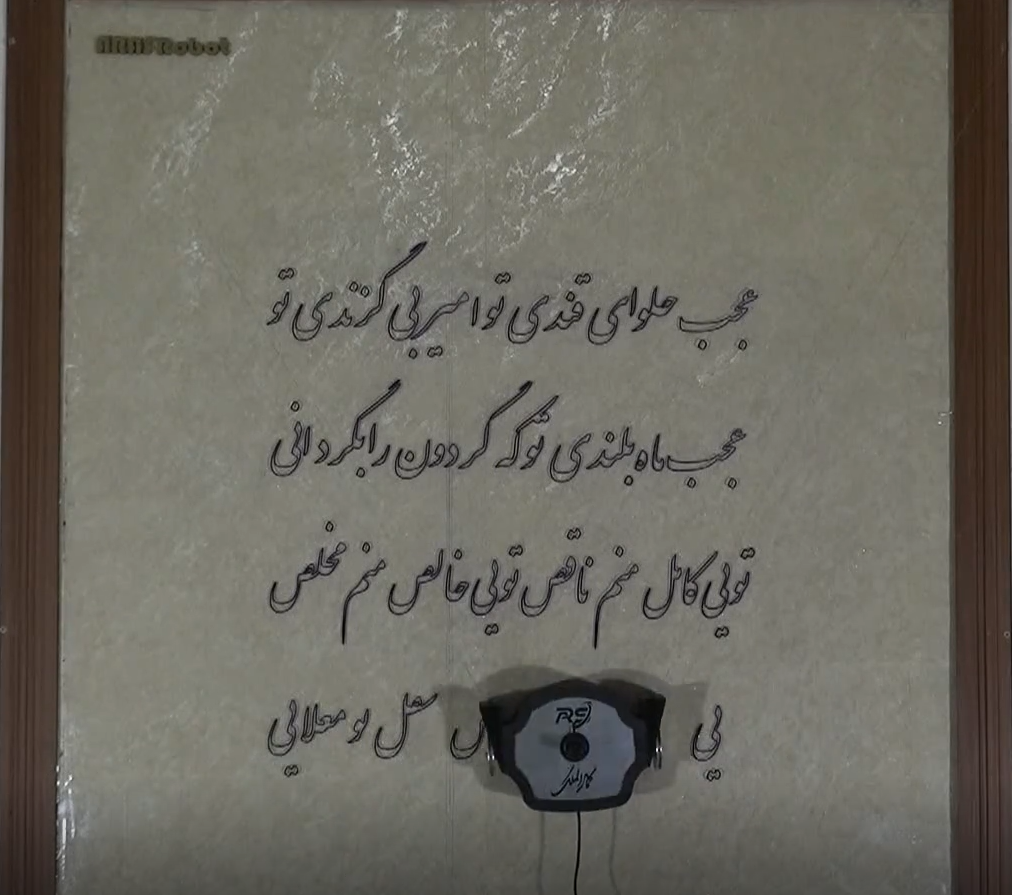 Robot
عجب حلوای قندی تو امیر بی گزندی تو
عجب ماه بلندی تو که گردون را بگردانی
تویی کامل منم ناقص تویی خالص منم مخلص
یی سفل تو معلایی